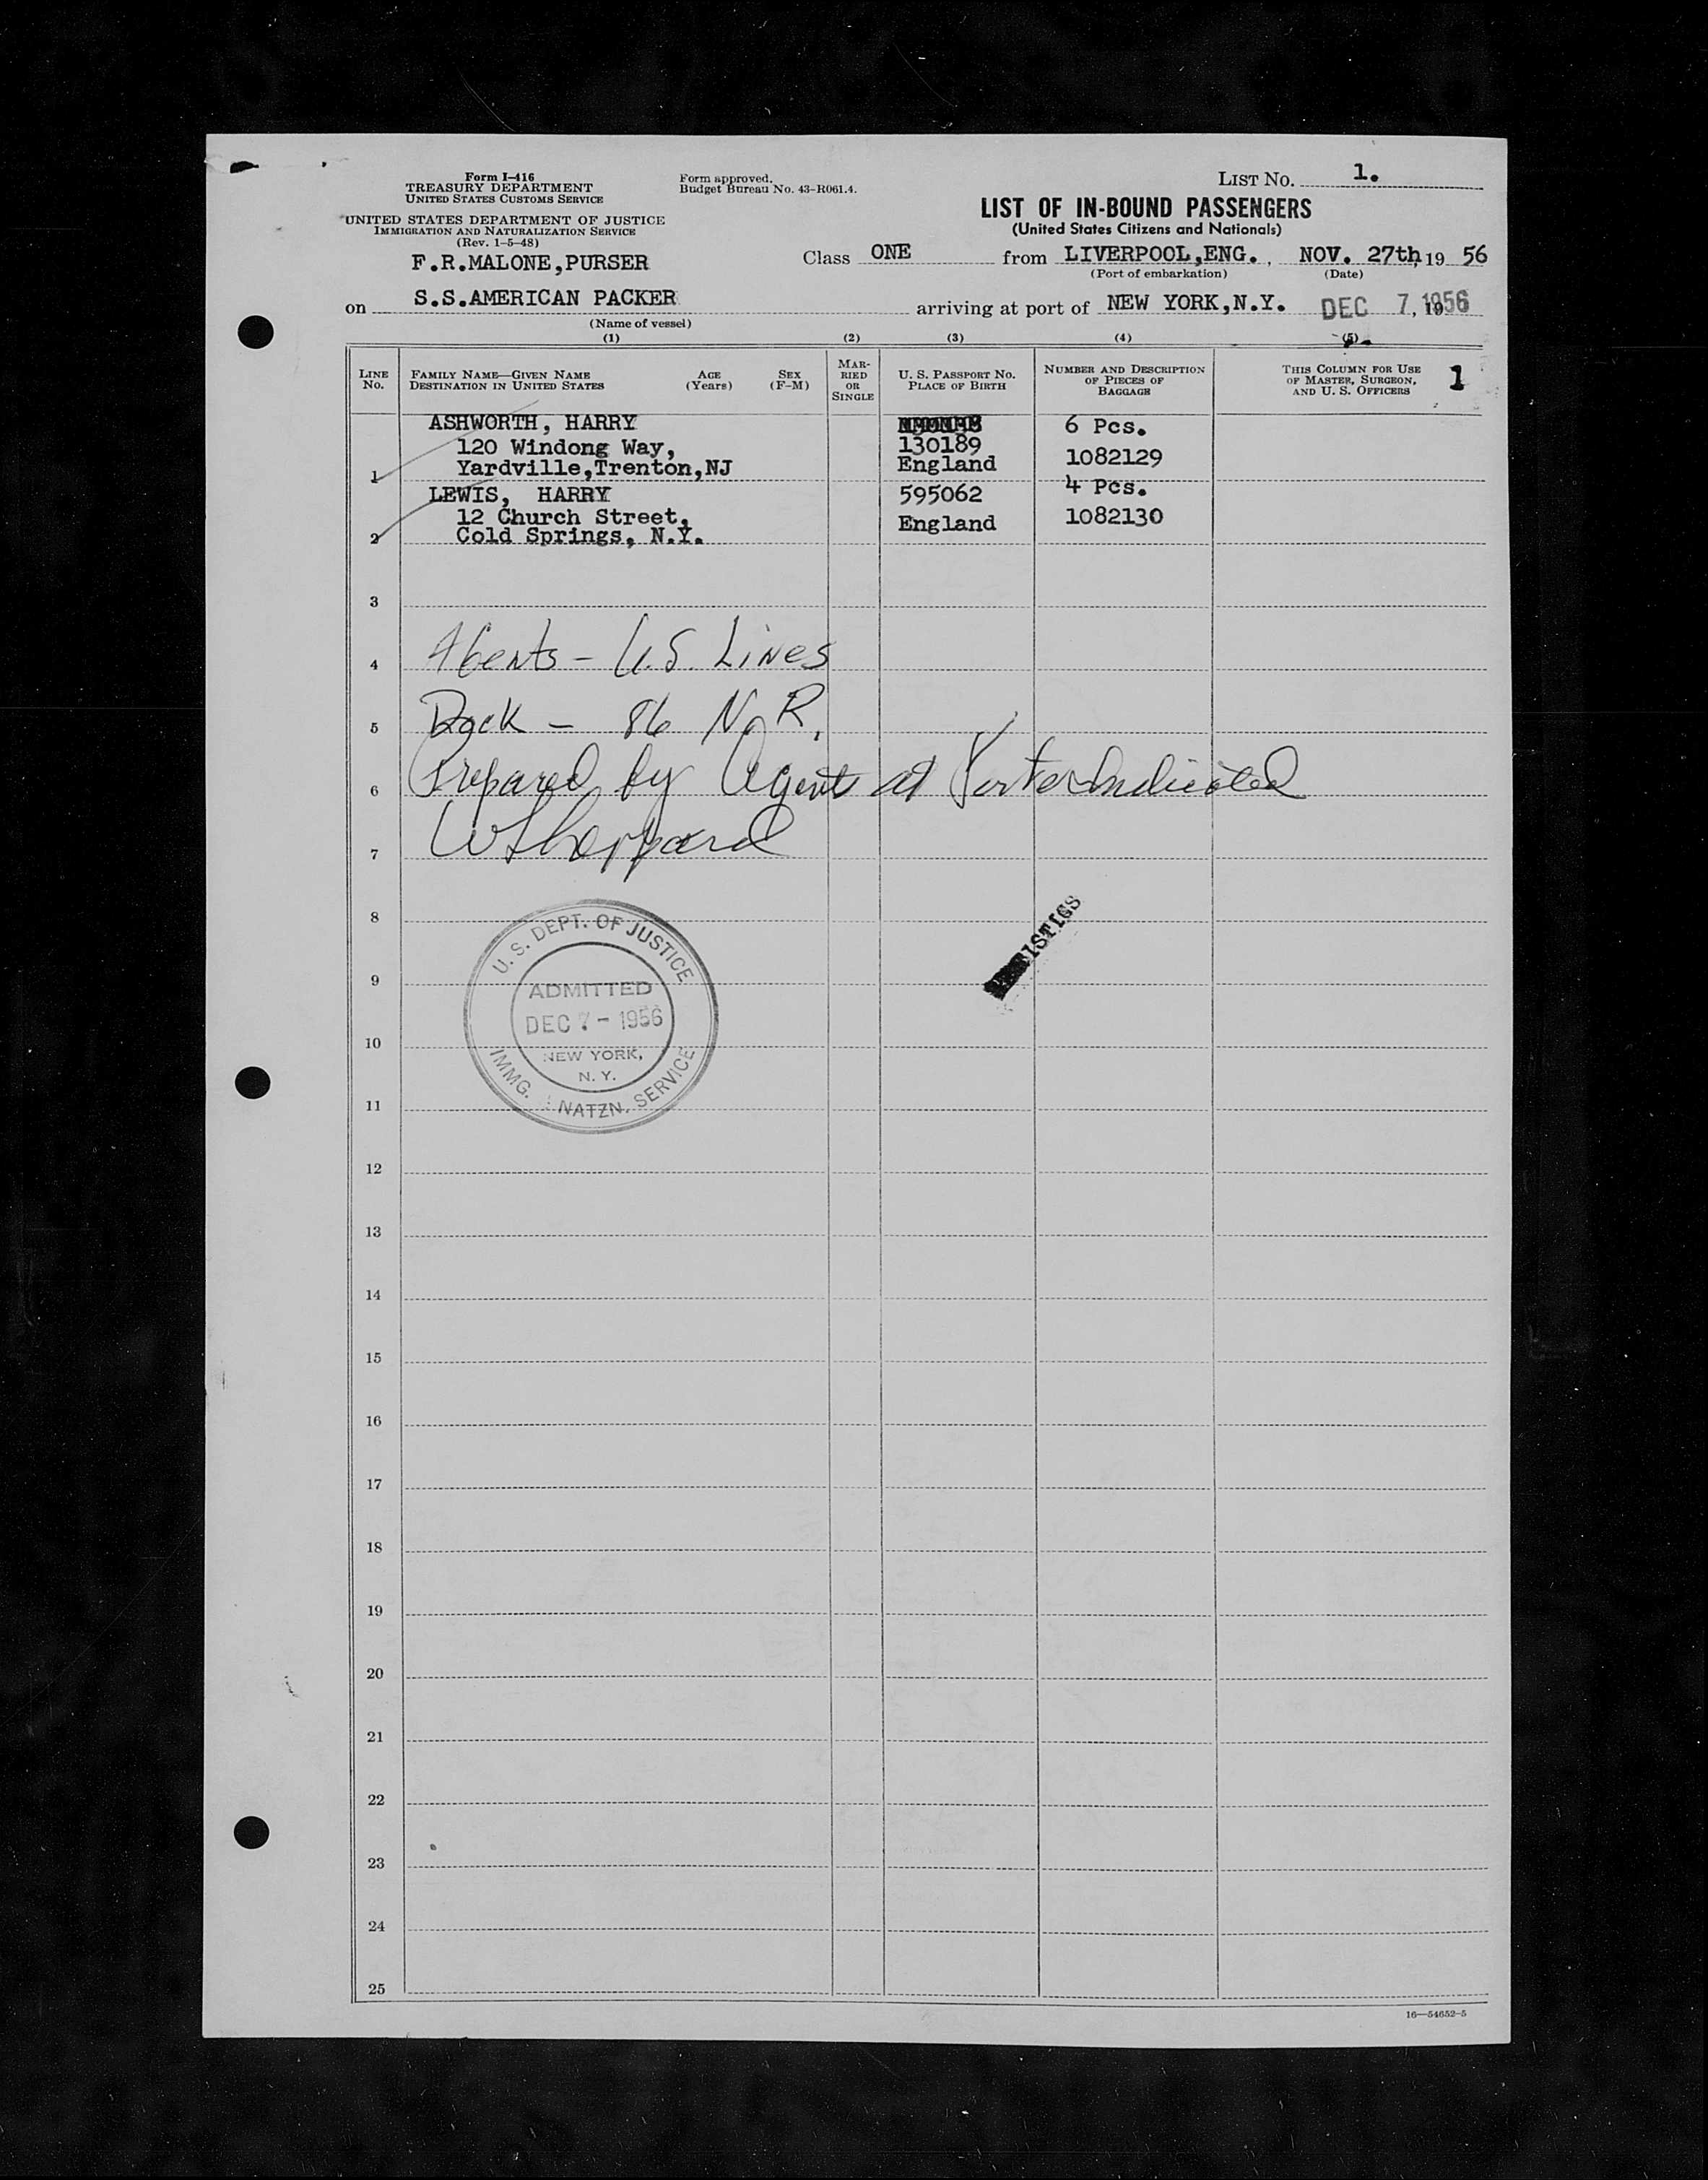 Form I-416
TREASURY DEPARTMENT
UNITED STATES CUSTOMS SERVICE
UNITED STATES DEPARTMENT OF JUSTICE
IMMIGRATION AND NATURALIZATION SERVICE
(Rev. 1-5-48)
Form approved.
Budget Bureau No. 43-R061.4.
LIST No. 1.
LIST OF IN-BOUND PASSENGERS
(United States Citizens and Nationals)
F.R.MALONE,PURSER
Class ONE from LIVERPOOL,ENG., NOV. 27th, 19 56
(Port of embarkation) (Date)
on S.S.AMERICAN PACKER arriving at port of NEW YORK,N.Y. DEC 7, 1956
(Name of vessel)
(1) (2) (3) (4) (5)
LINE No. FAMILY NAME—GIVEN NAME DESTINATION IN UNITED STATES AGE (Years) SEX (F-M) MARRIED OR SINGLE U. S. PASSPORT No. PLACE OF BIRTH NUMBER AND DESCRIPTION OF PIECES OF BAGGAGE THIS COLUMN FOR USE OF MASTER, SURGEON, AND U. S. OFFICERS 1
ASHWORTH, HARRY 6 Pcs.
120 Windong Way, 130189
1 Yardville,Trenton,NJ England 1082129
LEWIS, HARRY 595062 4 Pcs.
12 Church Street, England 1082130
2 Cold Springs, N.Y.
3
4 Agents - U.S. Lines
5 Dock - 86 N.R.
6 Prepared by Agents at Indicated
7 WSheppard
8
9
10
11
U.S. DEPT. OF JUSTICE
ADMITTED
DEC 7 - 1956
NEW YORK,
N. Y.
IMMG. NATZN. SERVICE
12
13
14
15
16
17
18
19
20
21
22
23
24
25
16—54652-5